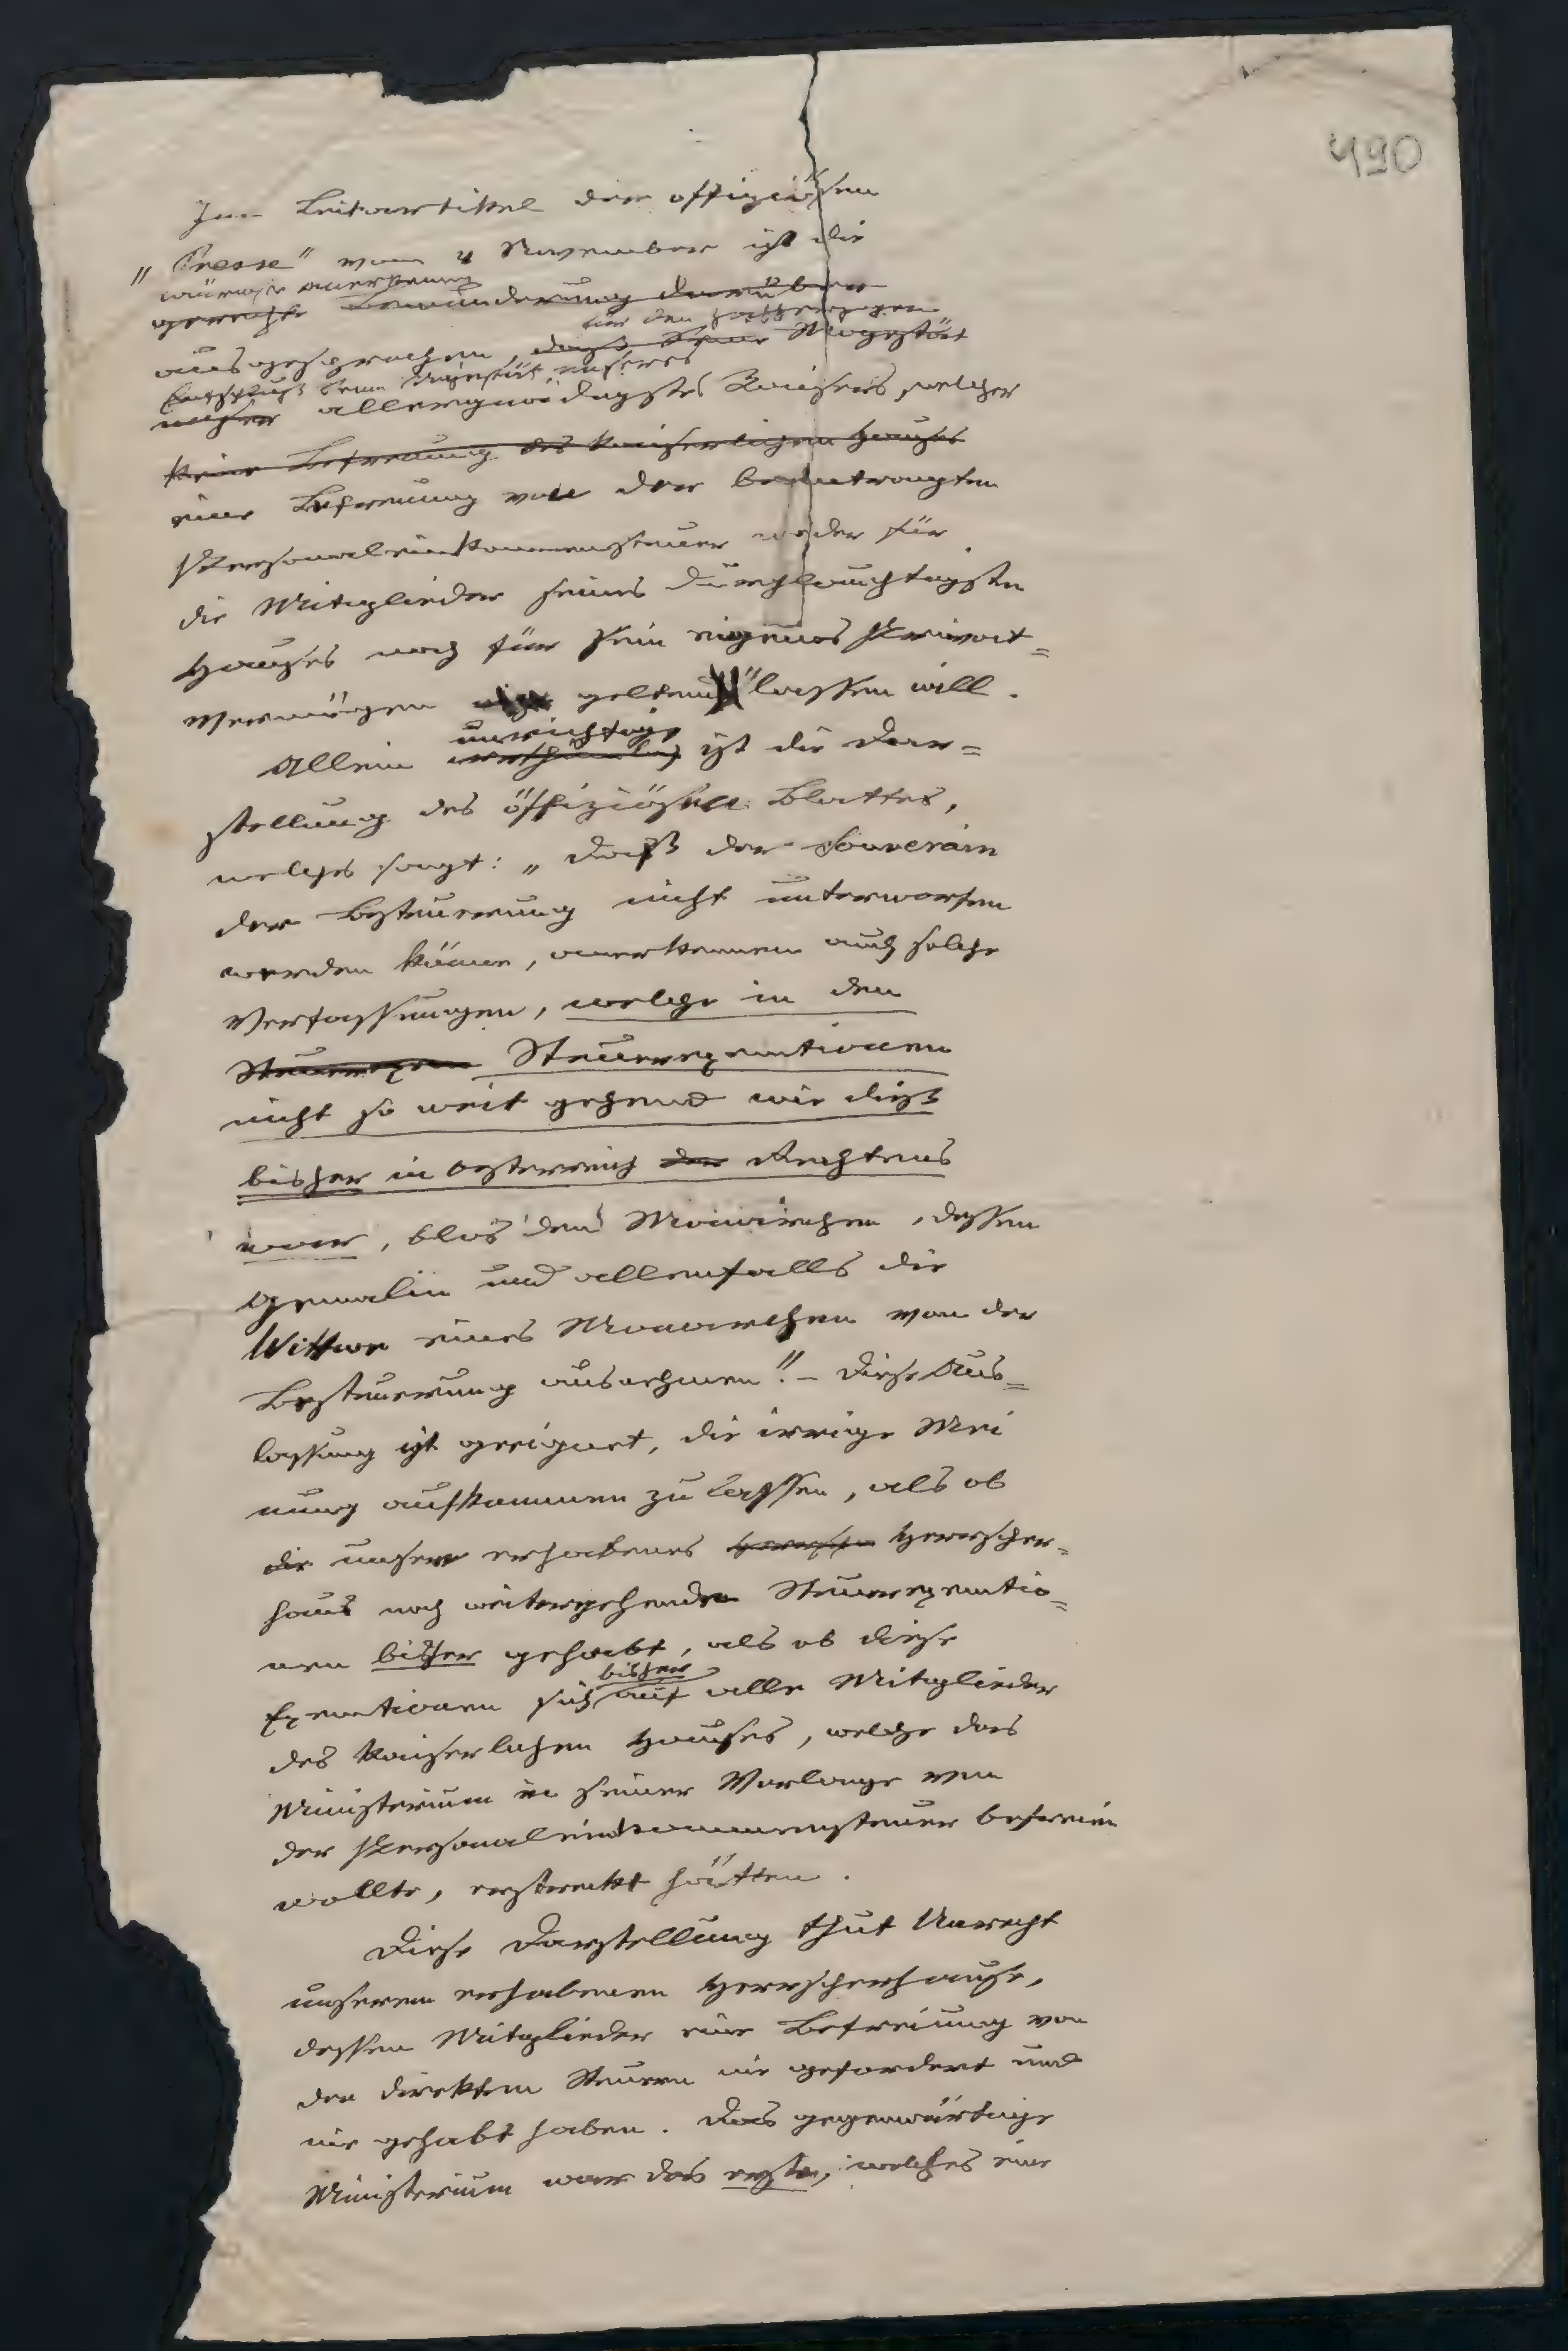 490
Im Leitartikel der offiziösen
„Presse“ vom 4 November ist die
wärmste Anerkennung
gerechte Bewunderung darüber
für den hochherzigen
ausgesprochen, daß Seine Majestät
Entschluß Seiner Majestät, unseres
unser allergnädigster Kaisers, welcher
keine Befreiung des kaiserlichen Hauses
eine Befreiung von der beantragten
Personaleinkommensteuer weder für
die Mitglieder seines durchlauchtigsten
Hauses noch für sein eigenes Privat=
vermögen gelten lassen will.
unrichtig
Allein ist die Dar=
stellung des offiziösen Blattes,
welches sagt: „daß der Souverain
der Besteuerung nicht unterworfen
werden könne, anerkennen auch solche
Verfassungen, welche in den
Steuerexem Steuerexemtionen
nicht so weit gehend wie dieß
bisher in Osterreich der Rechtens
war, blos den Monarchen, dessen
Gemalin und allenfalls die
Wittwe eines Monarchen von der
Besteuerung ausnehmen“. – Diese Aus=
lassung ist geeignet, die irrige Mei
nung aufkommen zu lassen, als ob
die unser erhabenes Herrscher=
haus noch weitergehende Steuerexemtio=
nen bisher gehabt, als ob diese
bisher
Exemtionen sich auf alle Mitglieder
des kaiserlichen Hauses, welche das
Ministerium in seiner Vorlage von
der Personaleinkommensteuer befreien
wollte, erstreckt hätten.
Diese Darstellung thut Unrecht
unserem erhabenen Herrscherhause,
dessen Mitglieder eine Befreiung von
den direkten Steuern nie gefordert und
nie gehabt haben. Das gegenwärtige
Ministerium war das erste, welches eine